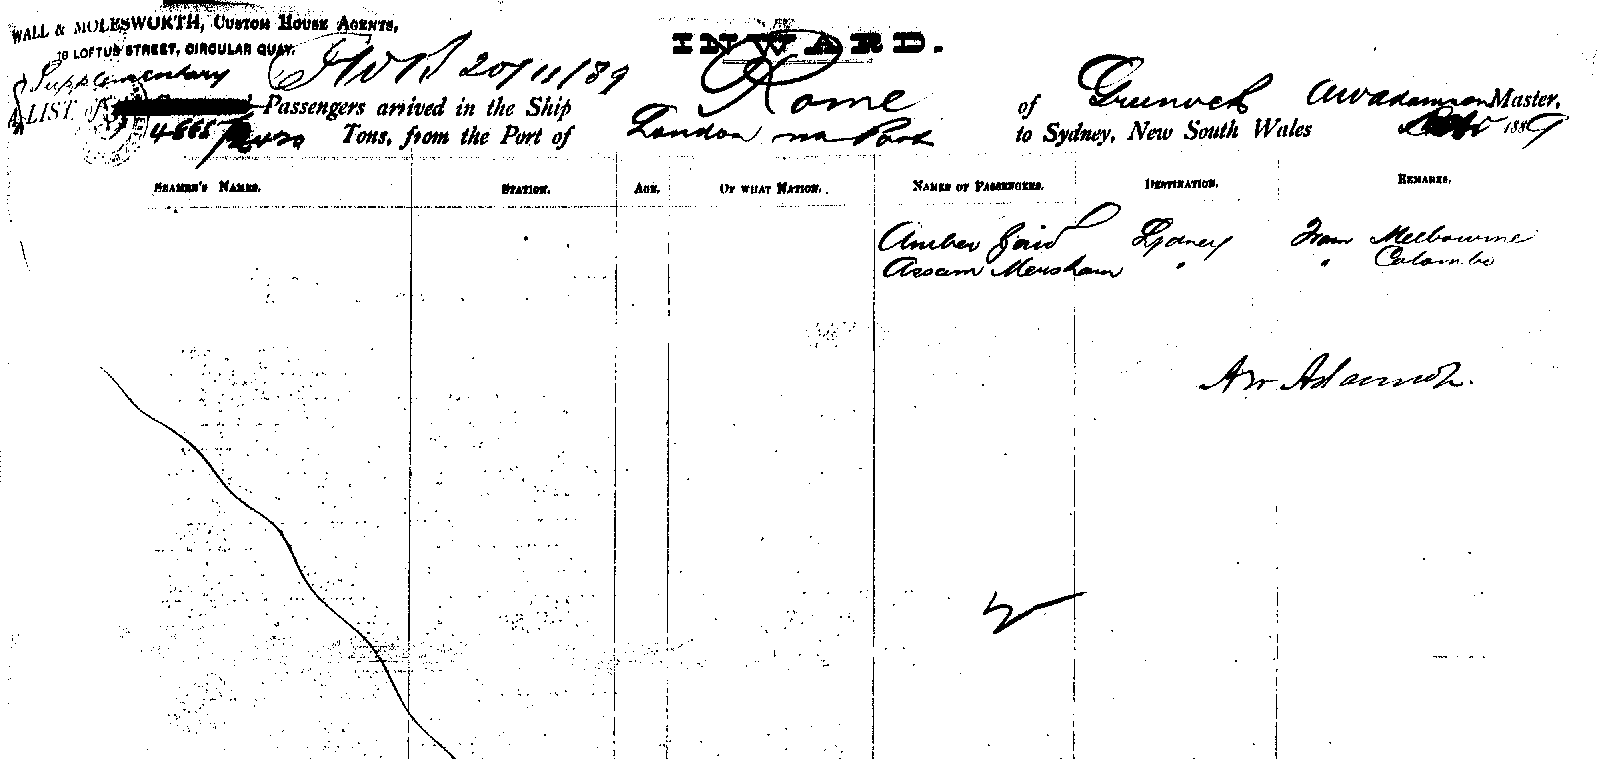 WALL & MOLESWORTH, CUSTOM HOUSE AGENTS,
18 LOFTUS STREET, CIRCULAR QUAY.
INWARD.
Supplementary
20/11/89
LIST of Passengers arrived in the Ship Rome of Greenock AW Adamson Master,
Tons, from the Port of London to Sydney, New South Wales 1889
SEAMEN'S NAMES. STATION. AGE. OF WHAT NATION. NAMES OF PASSENGERS. DESTINATION. REMARKS.
Amber Sydney From Melbourne
Assam Mersham " " Colombo
AW Adamson.
2